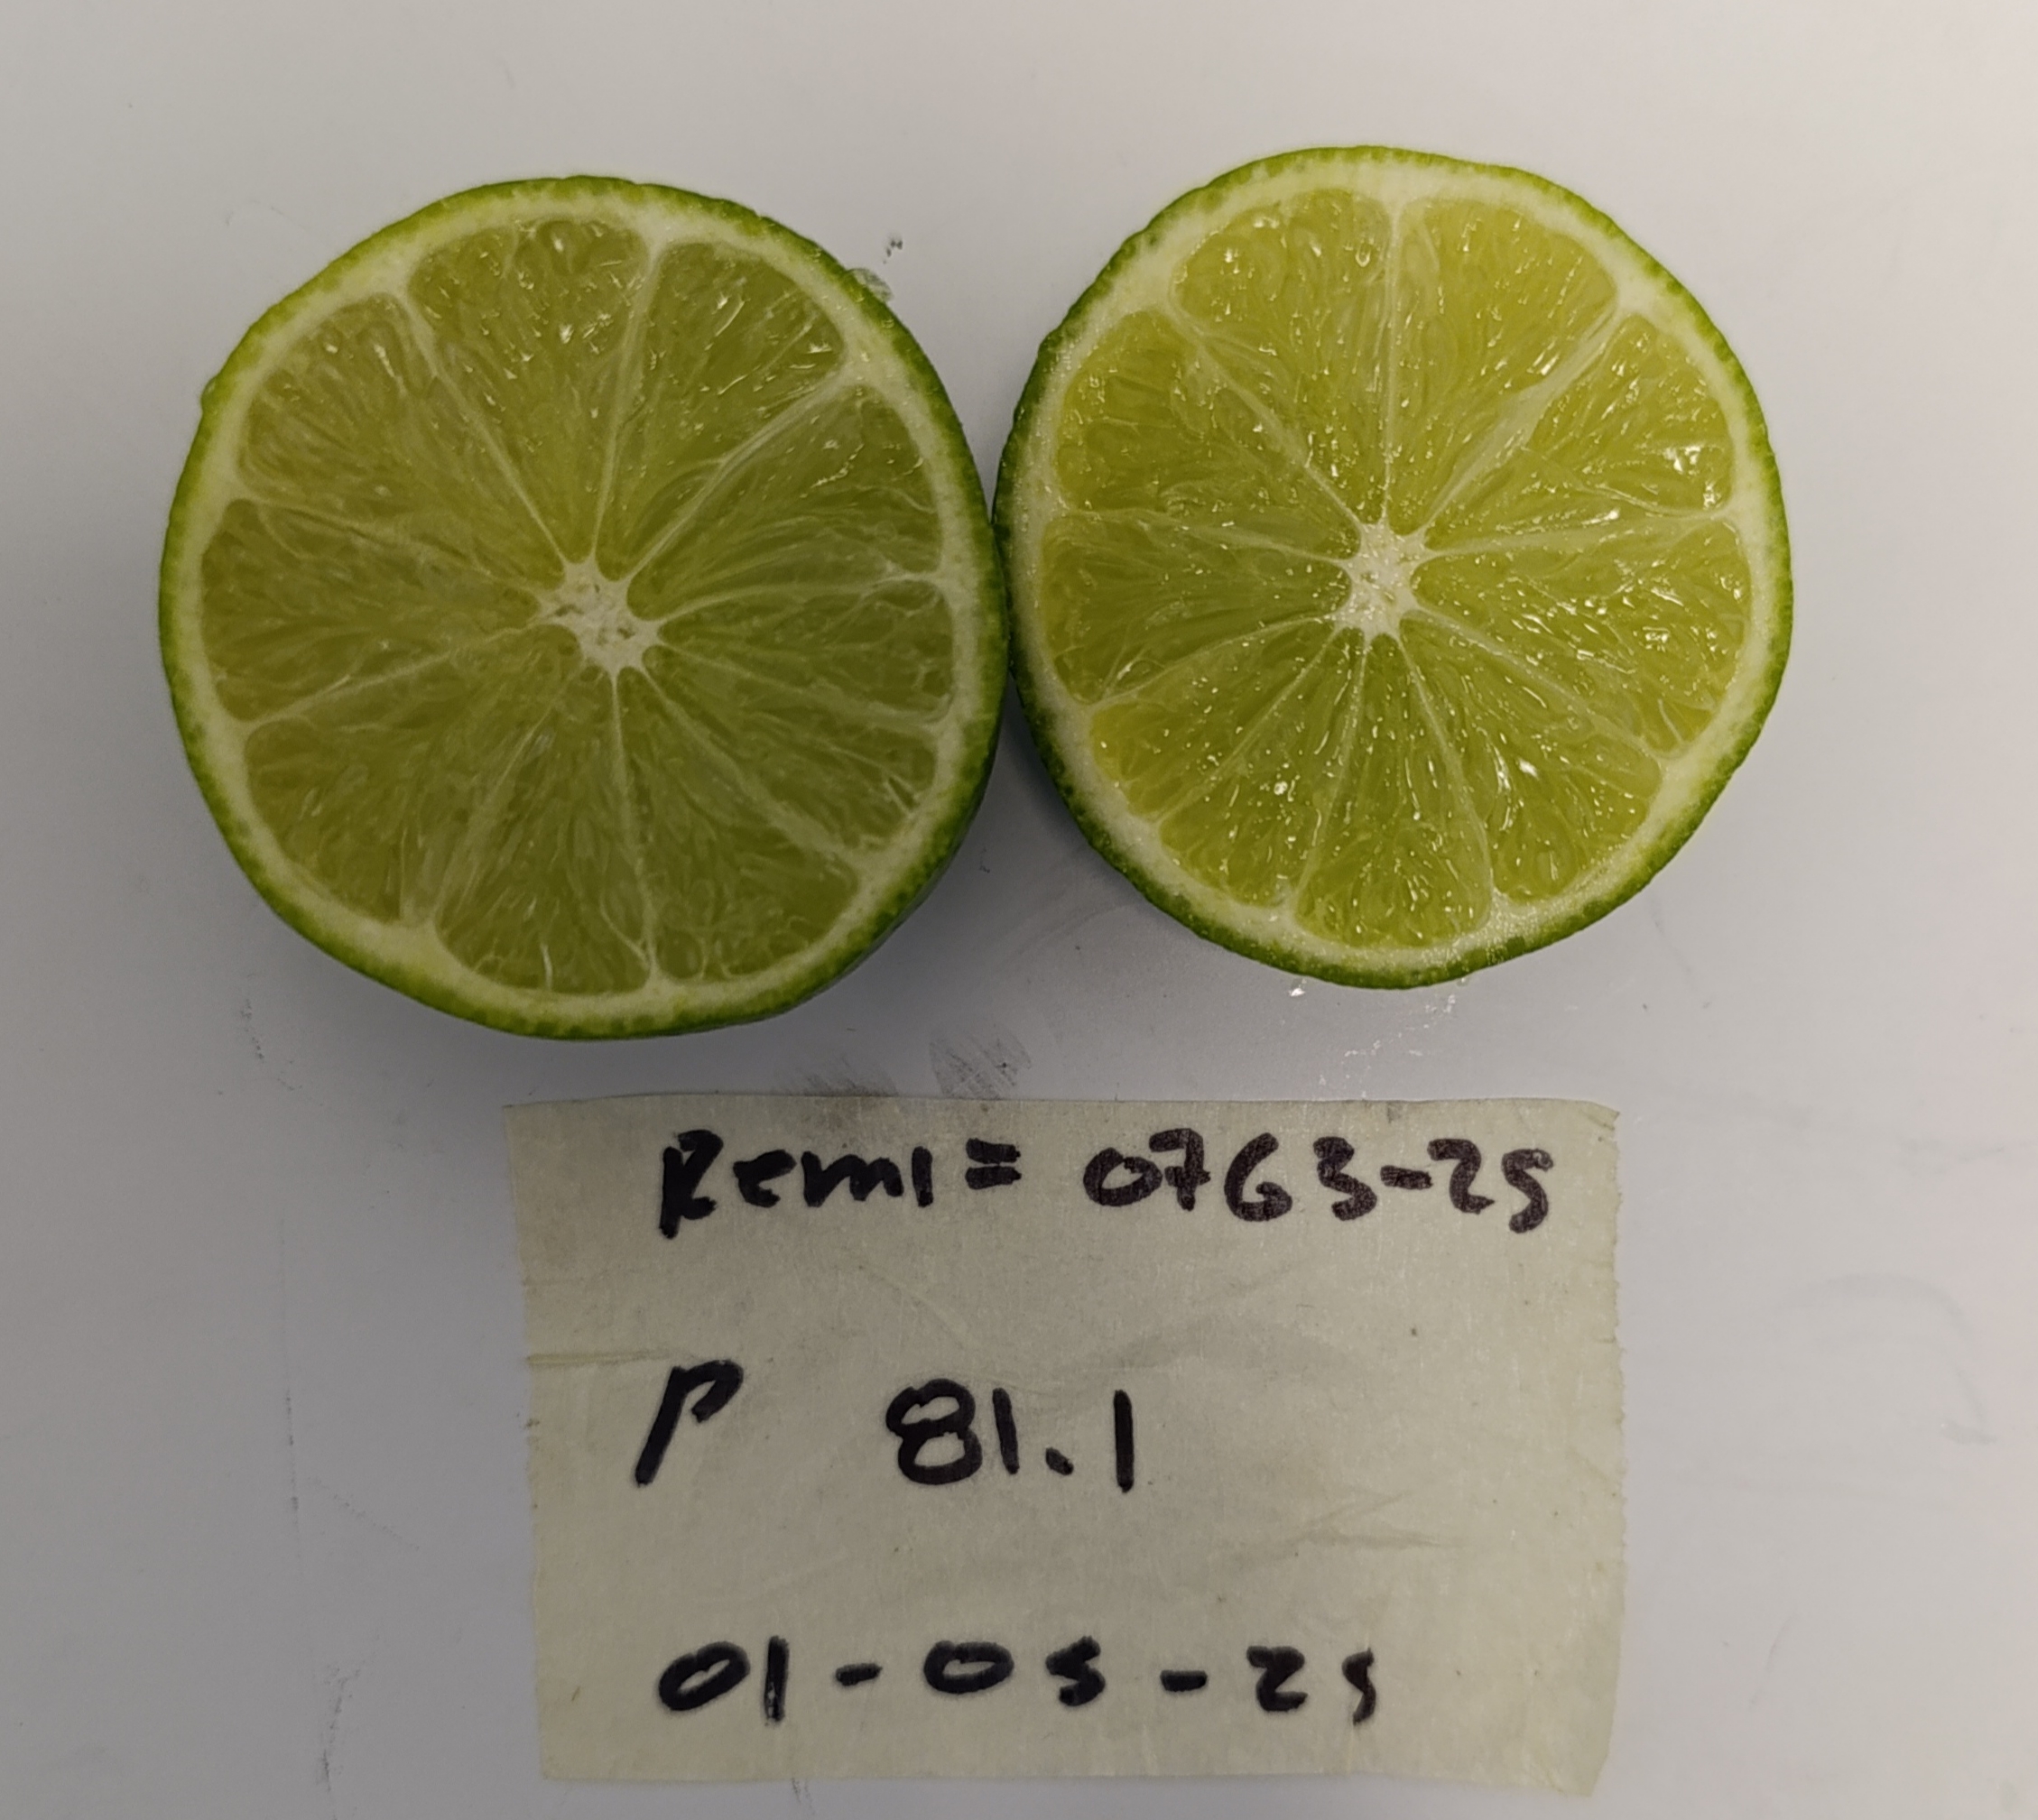 Remi= 0763-25
P 81.1
01-05-25